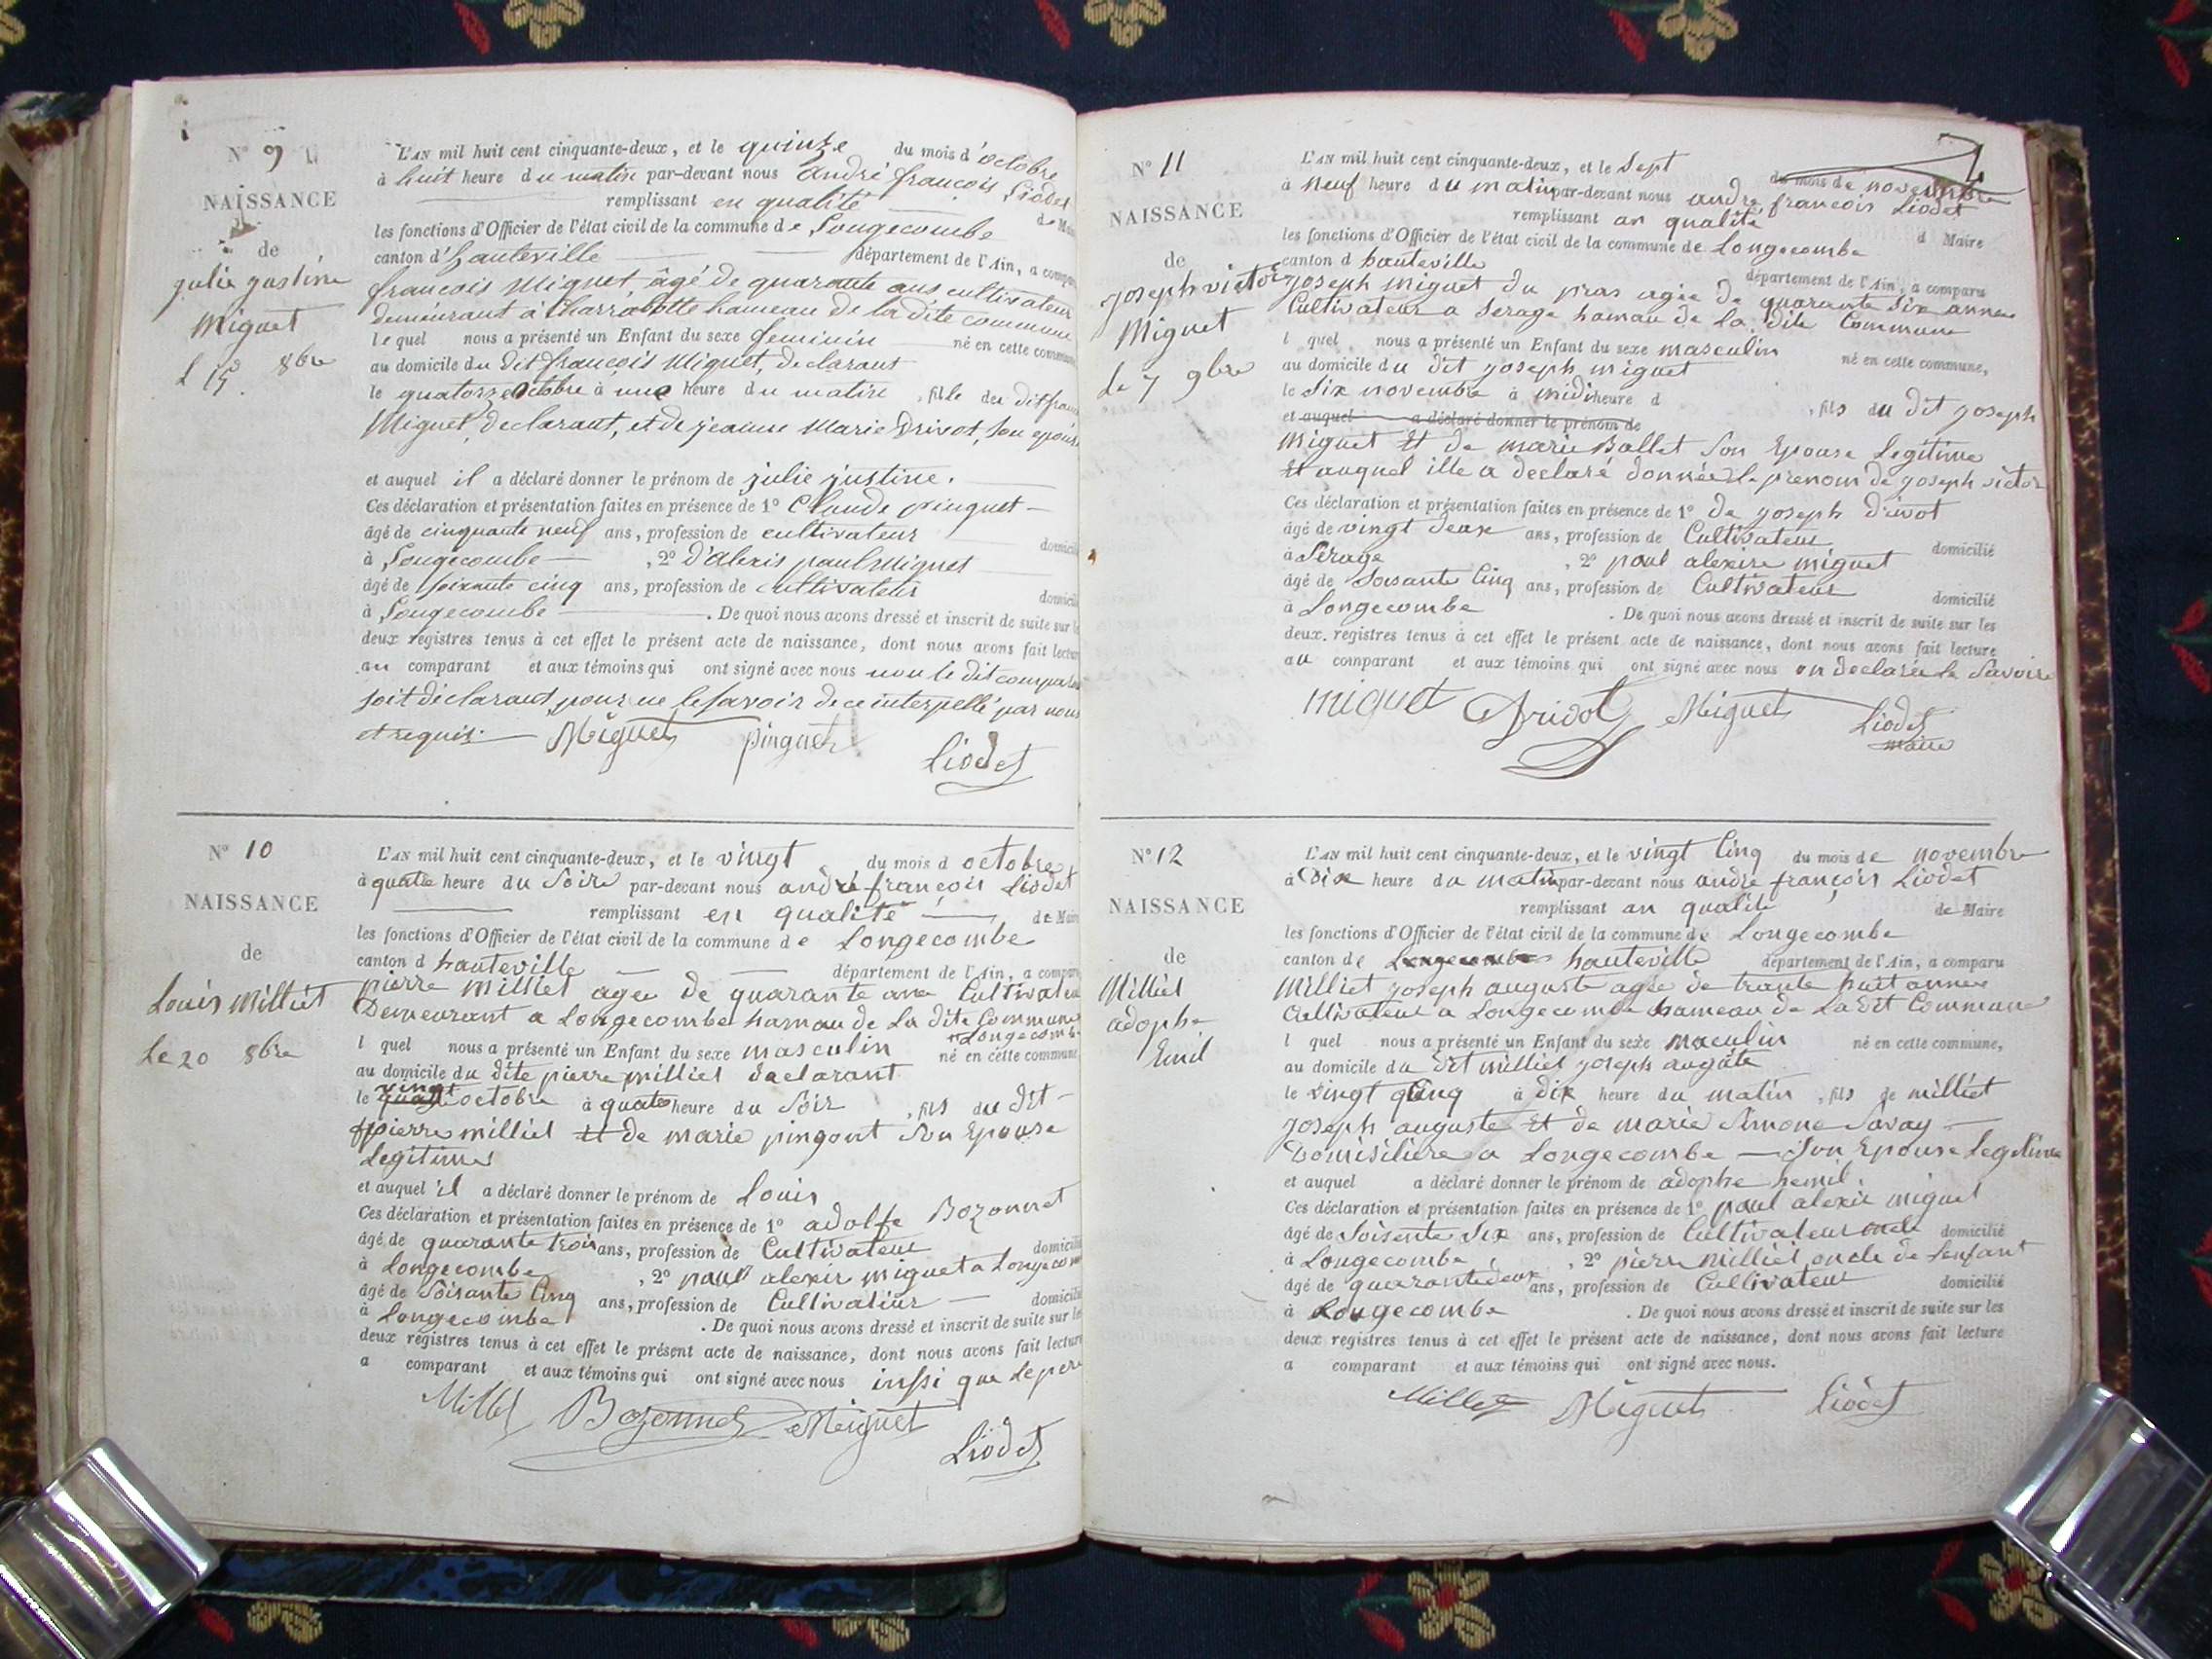 N° 9
NAISSANCE
de
julie justine
Miguet
L 15 8bre
L'AN mil huit cent cinquante-deux, et le quinze du mois d'octobre
à huit heure du matin par-devant nous andré françois Liodet
remplissant en qualité de Mai
les fonctions d'Officier de l'état civil de la commune de Longecombe
canton d'hauteville département de l'Ain, a compa
francois Miguet, âgé de quarante ans cultivateur
demeurant à Charrabotte hameau de la dite commune
lequel nous a présenté un Enfant du sexe feminin né en cette commune
au domicile du dit francois Miguet, declarant
le quatorze octobre à une heure du matin , fille du dit fran
Miguet, declarant, et de jeanne Marie Drivot, son epouse
et auquel il a déclaré donner le prénom de julie justine.
Ces déclaration et présentation faites en présence de 1° Claude pinguet
âgé de cinquante neuf ans, profession de cultivateur domicil
à Longecombe , 2° d'Alexis paul Miguet
âgé de soixante cinq ans, profession de cultivateur domicil
à Longecombe . De quoi nous avons dressé et inscrit de suite sur le
deux registres tenus à cet effet le présent acte de naissance, dont nous avons fait lectur
au comparant et aux témoins qui ont signé avec nous non le dit compara
soit déclarant, pour ne le savoir de ce interpellé par nous
et requis. Miguet pinguet
Liodet
N° 10
NAISSANCE
de
Louis Milliet
Le 20 8bre
L'AN mil huit cent cinquante-deux, et le vingt du mois d octobre
à quatre heure du Soire par-devant nous andré françois Liodet
remplissant en qualité de Mair
les fonctions d'Officier de l'état civil de la commune de Longecombe
canton d hauteville département de l'Ain, a compar
pierre Milliet agee de quarante ans Cultivateu
Demeurant a Longecombe hamau de La dite Commune
Longecombe
l quel nous a présenté un Enfant du sexe masculin né en cette commune
au domicile du dite pierre milliet declarant
vingt
le octobre à quatre heure du Soir , fils du dit
pierre milliet Et de marie pingont Son Epouse
Legitimes
et auquel il a déclaré donner le prénom de Louis
Ces déclaration et présentation faites en présence de 1° adolfe Bozonnet
âgé de quarante trois ans, profession de Cultivateur domicili
à Longecombe , 2° paul alexis miguet a Longecom
âgé de Soisante Cinq ans, profession de Cultivateur domicili
à Longecombe . De quoi nous avons dressé et inscrit de suite sur le
deux registres tenus à cet effet le présent acte de naissance, dont nous avons fait lecture
a comparant et aux témoins qui ont signé avec nous inssi que Le pere
Millet Bozonnet Miguet
Liodet
N° 11
NAISSANCE
de
joseph victor
Miguet
Le 7 9bre
L'AN mil huit cent cinquante-deux, et le Sept du mois de novembre
à Neuf heure du matin par-devant nous andre francois Liodet
remplissant an qualité d Maire
les fonctions d'Officier de l'état civil de la commune de Longecombe
canton d hauteville département de l'Ain, a comparu
joseph miguet du pras agée de quarante Six annee
Cultivateur a Serage hamau de la dite Commune
l quel nous a présenté un Enfant du sexe masculin né en cette commune,
au domicile du dit joseph miguet
le Six novembre à midi heure d , fils du dit joseph
et auquel a déclaré donner le prénom de
miguet Et de marie Ballet Son Epouse Legitime
Et auquel ille a declaré donnée le prenom de joseph victor
Ces déclaration et présentation faites en présence de 1° De joseph drivot
âgé de vingt deux ans, profession de Cultivateur domicilié
à Serage , 2° paul alexire miguet
âgé de Soisante Cinq ans, profession de Cultivateur domicilié
à Longecombe . De quoi nous avons dressé et inscrit de suite sur les
deux registres tenus à cet effet le présent acte de naissance, dont nous avons fait lecture
au comparant et aux témoins qui ont signé avec nous on declaré Le Savoire
miguet Drivot Miguet Liodet
maire
N° 12
NAISSANCE
de
Milliet
adophe
Emil
L'AN mil huit cent cinquante-deux, et le vingt Cinq du mois de novembre
à Dix heure du matin par-devant nous andre françois Liodet
remplissant an qualité de Maire
les fonctions d'Officier de l'état civil de la commune de Longecombe
canton de Longecombe hauteville département de l'Ain, a comparu
Milliet joseph auguste agée de trante huit annee
Cultivateur a Longecombe hameau de La dit Commune
l quel nous a présenté un Enfant du sexe maculin né en cette commune,
au domicile du dit milliet joseph auguste
le vingt qinq à dix heure du matin , fils de milliet
joseph auguste Et de marie Simone Savay
Domisiliere a Longecombe Son Epouse Legitime
et auquel a déclaré donner le prénom de adophe hemil.
Ces déclaration et présentation faites en présence de 1° paul alexis miguet
âgé de Soisente Six ans, profession de Cultivateur domicilié
à Longecombe , 2° pierre Milliet oncle de Lenfant
âgé de quarante deux ans, profession de Cultivateur domicilié
à Longecombe . De quoi nous avons dressé et inscrit de suite sur les
deux registres tenus à cet effet le présent acte de naissance, dont nous avons fait lecture
a comparant et aux témoins qui ont signé avec nous.
Millet Miguet Liodet